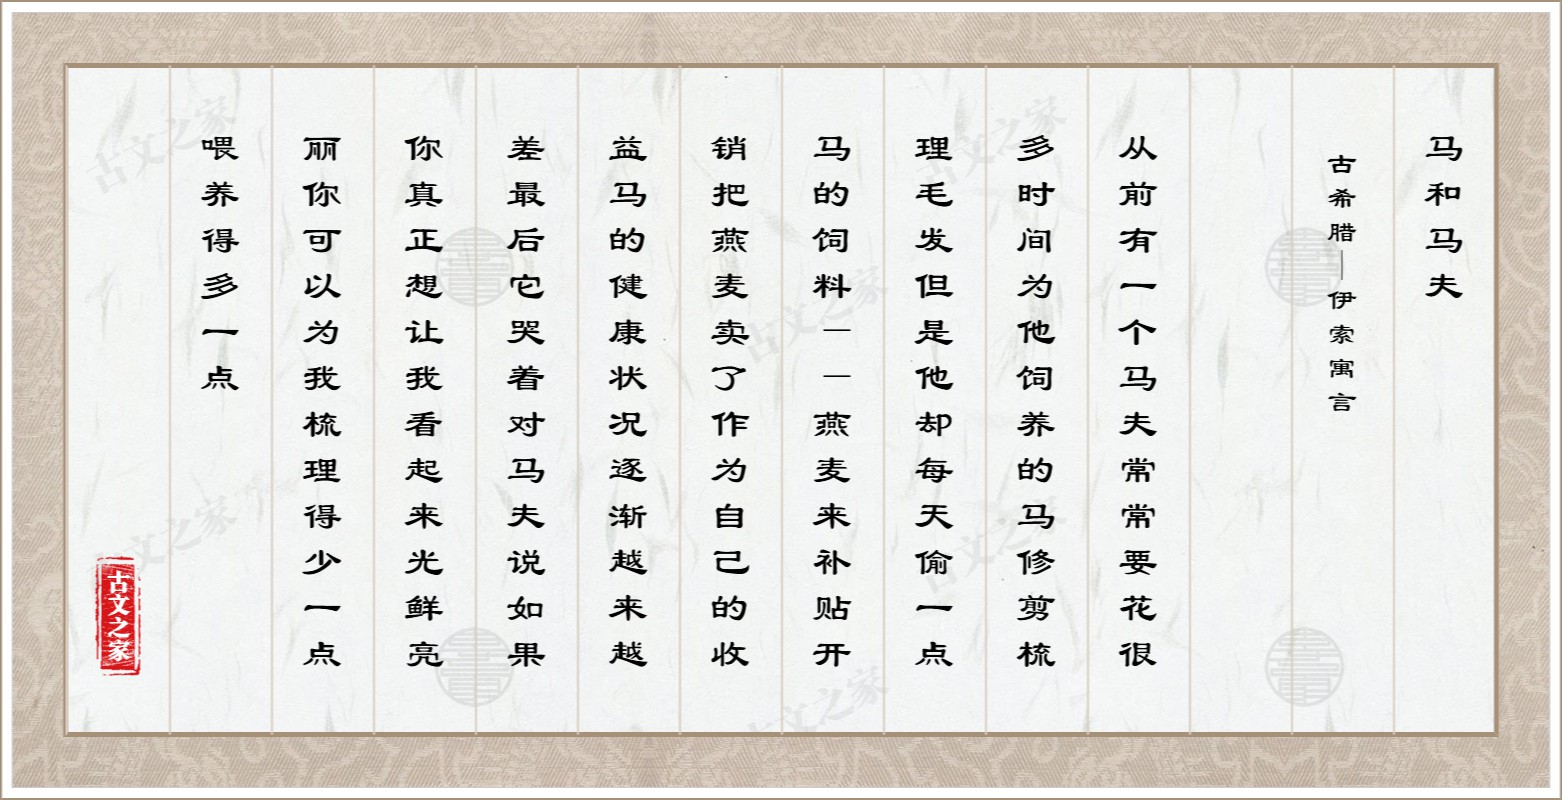 马和马夫
古希腊|伊索寓言
从前有一个马夫常常要花很
多时间为他饲养的马修剪梳
理毛发但是他却每天偷一点
马的饲料——燕麦来补贴开
销把燕麦卖了作为自己的收
益马的健康状况逐渐越来越
差最后它哭着对马夫说如果
你真正想让我看起来光鲜亮
丽你可以为我梳理得少一点
喂养得多一点
古文之家
古文之家
古文之家
古文之家
古文之家
古文之家
古文之家